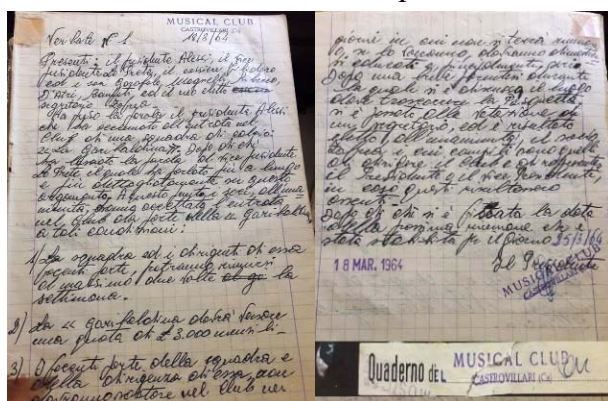 MUSICAL CLUB
CASTROVILLARI (Cs)
Verbale N° 1. 18/3/64
Presenti: il presidente Alessi, il vice
presidente La Creta, il cassiere
e i soci
ed il neo eletto
segretario
Ha preso la parola il presidente Alessi
che ha accennato all'entrata nel
Club di una squadra di calcio:
"La Garibaldina". Dopo di che
ha lasciato la parola al vice presidente
il quale ha parlato più a lungo
e più dettagliatamente su questo
argomento. A questo punto i soci, all'una
nimità, hanno accettato l'entrata
nel Club da parte della "Garibaldina
a tali condizioni:
1) La squadra ed i dirigenti di essa
facenti parte, potranno riunirsi
al massimo due volte la
settimana.
2) La "Garibaldina dovrà versare
una quota di £ 3.000 mensili.
3) I facenti parte della squadra e
della dirigenza di essa, non
dovranno sostare nel Club nei
giorni in cui non si terrà riunione
o, se lo faranno, dovranno dimostrarsi
educati e
Dopo una breve parentesi durante
la quale si è discusso il luogo
dove trascorrere la Pasquetta,
si è passati alla votazione di
un segretario, ed è risultato
eletto, all'unanimità, il socio
i cui compiti sono quelli
di dirigere il Club e di rappresentare
il Presidente e il vice Presidente,
in caso questi risultassero
assenti.
Dopo di che si è fissata la data
della prossima riunione che è
stata stabilita per il giorno 25/3/64
18 MAR. 1964
Il Presidente
MUSICAL CLUB
CASTROVILLARI
Quaderno DEL MUSICAL CLUB
CASTROVILLARI (Cs)